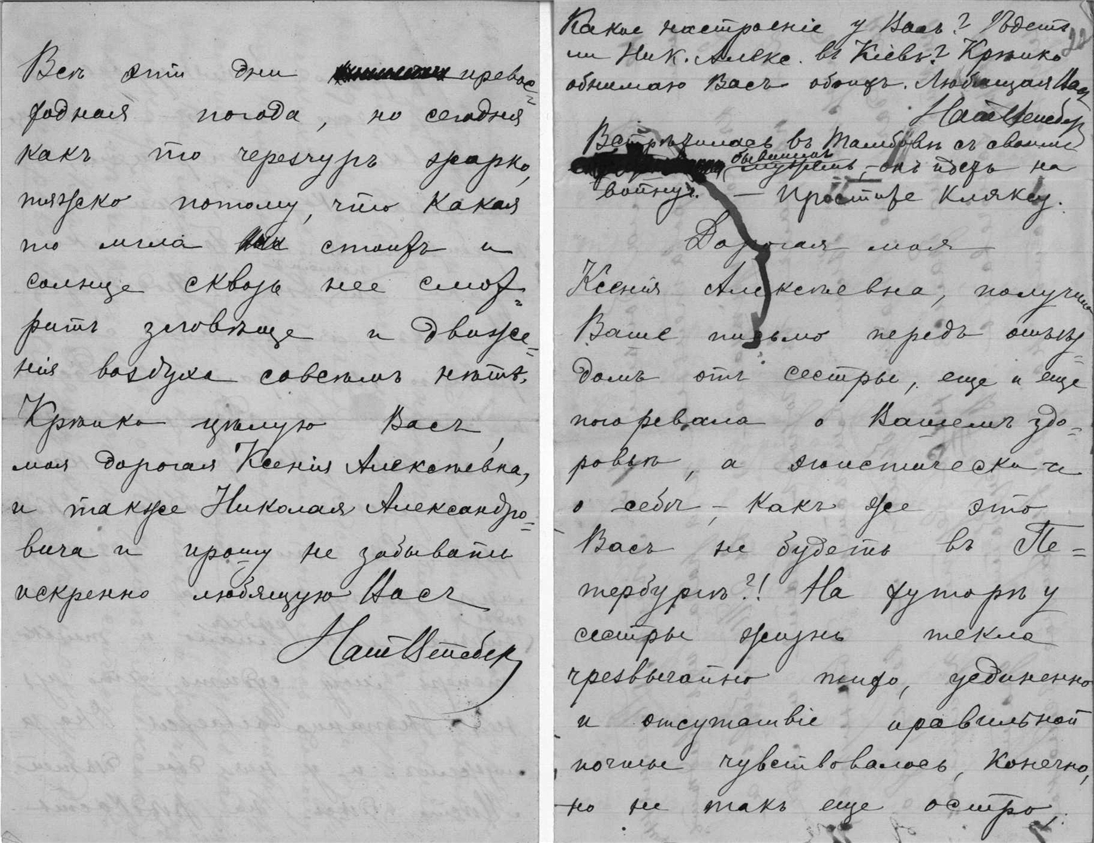 Всѣ эти дни превос=
ходная погода, но сегодня
какъ то черезчуръ жарко,
тяжко потому, что какая
то мгла стоитъ и
солнце сквозь нее смот=
ритъ зловѣще и движе=
нія воздуха совсѣмъ нѣтъ.
Крѣпко цѣлую Васъ,
моя дорогая Ксенія Алексѣевна,
и также Николая Александро=
вича и прошу не забывать
искренно любящую Васъ

Какое настроеніе у Васъ? Ѣдетъ 22
ли Ник. Алекс. въ Кіевъ? Крѣпко
обнимаю Васъ обоихъ. Любящая Васъ
Встрѣтилась въ Тамбовѣ съ своимъ
бывшимъ мужемъ, – онъ идетъ на
войну. – Простите кляксу.
Дорогая моя
Ксенія Алексѣевна, получила
Ваше письмо передъ отъѣз=
домъ отъ сестры, еще и еще
погоревала о Вашемъ здо=
ровьѣ, а эгоистически и
о себѣ – какъ же это
Васъ не будетъ въ Пе=
тербургѣ?! На хуторѣ у
сестры жизнь текла
чрезвычайно тихо, уединенно
и отсутствіе правильной
почты чувствовалось, конечно,
но не такъ еще остро,